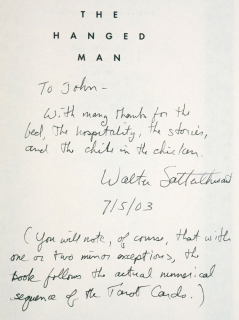 THE
HANGED
MAN
To John -
With many thanks for the
bed, the hospitality, the stories,
and the chile in the chicken.
Walter Satterthwait
7/5/03
(You will note, of course, that with
one or two minor exceptions, the
book follows the actual numerical
sequence of the Tarot Cards.)